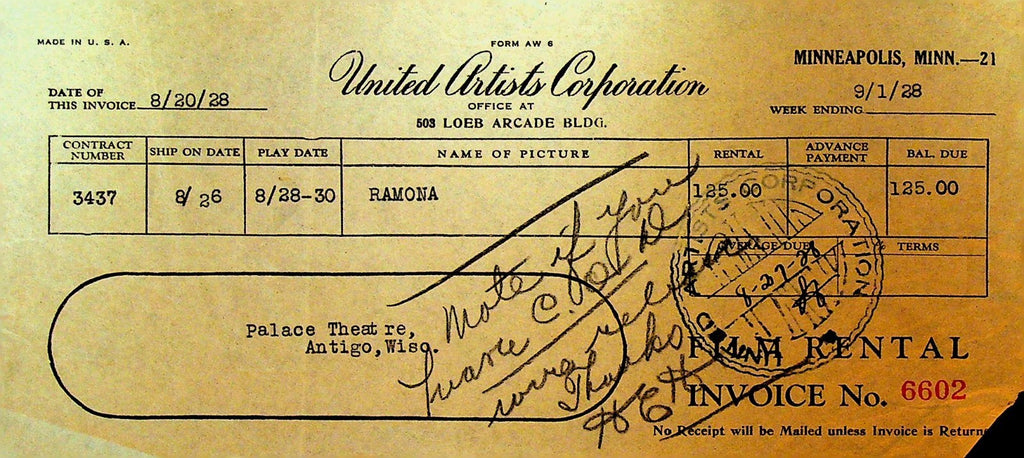 MADE IN U. S. A.
FORM AW 6
United Artists Corporation
OFFICE AT
503 LOEB ARCADE BLDG.
MINNEAPOLIS, MINN.—21
DATE OF
THIS INVOICE 8/20/28
9/1/28
WEEK ENDING
CONTRACT NUMBER SHIP ON DATE PLAY DATE NAME OF PICTURE RENTAL ADVANCE PAYMENT BAL. DUE
3437 8/26 8/28-30 RAMONA 125.00 125.00
AVERAGE DUE % TERMS
UNITED ARTISTS CORPORATION
8-27-28
Palace Theatre,
Antigo, Wisc.
Mote if you
C.O.D.
Thanks
HEH
FILM RENTAL
INVOICE No. 6602
No Receipt will be Mailed unless Invoice is Return